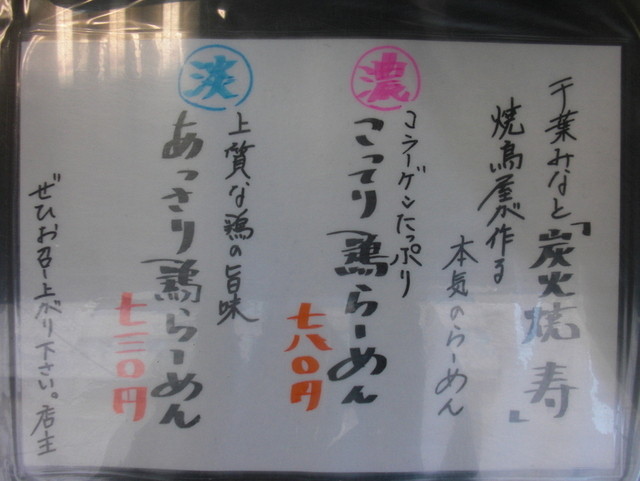 千葉みなと「炭火焼 寿」
焼鳥屋が作る
本気のらーめん
濃
コラーゲンたっぷり
こってり鶏らーめん
七八〇円
淡
上質な鶏の旨味
あっさり鶏らーめん
七三〇円
ぜひお召し上がり下さい。店主